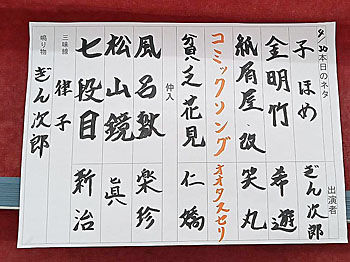 9/30 本日のネタ 出演者
子ほめ ぎん次郎
金明竹 希遊
紙屑屋・改 笑丸
コミックソング オオタスセリ
貧乏花見 仁嬌
仲入
風呂敷 楽珍
松山鏡 眞
七段目 新治
三味線 律子
鳴り物 ぎん次郎